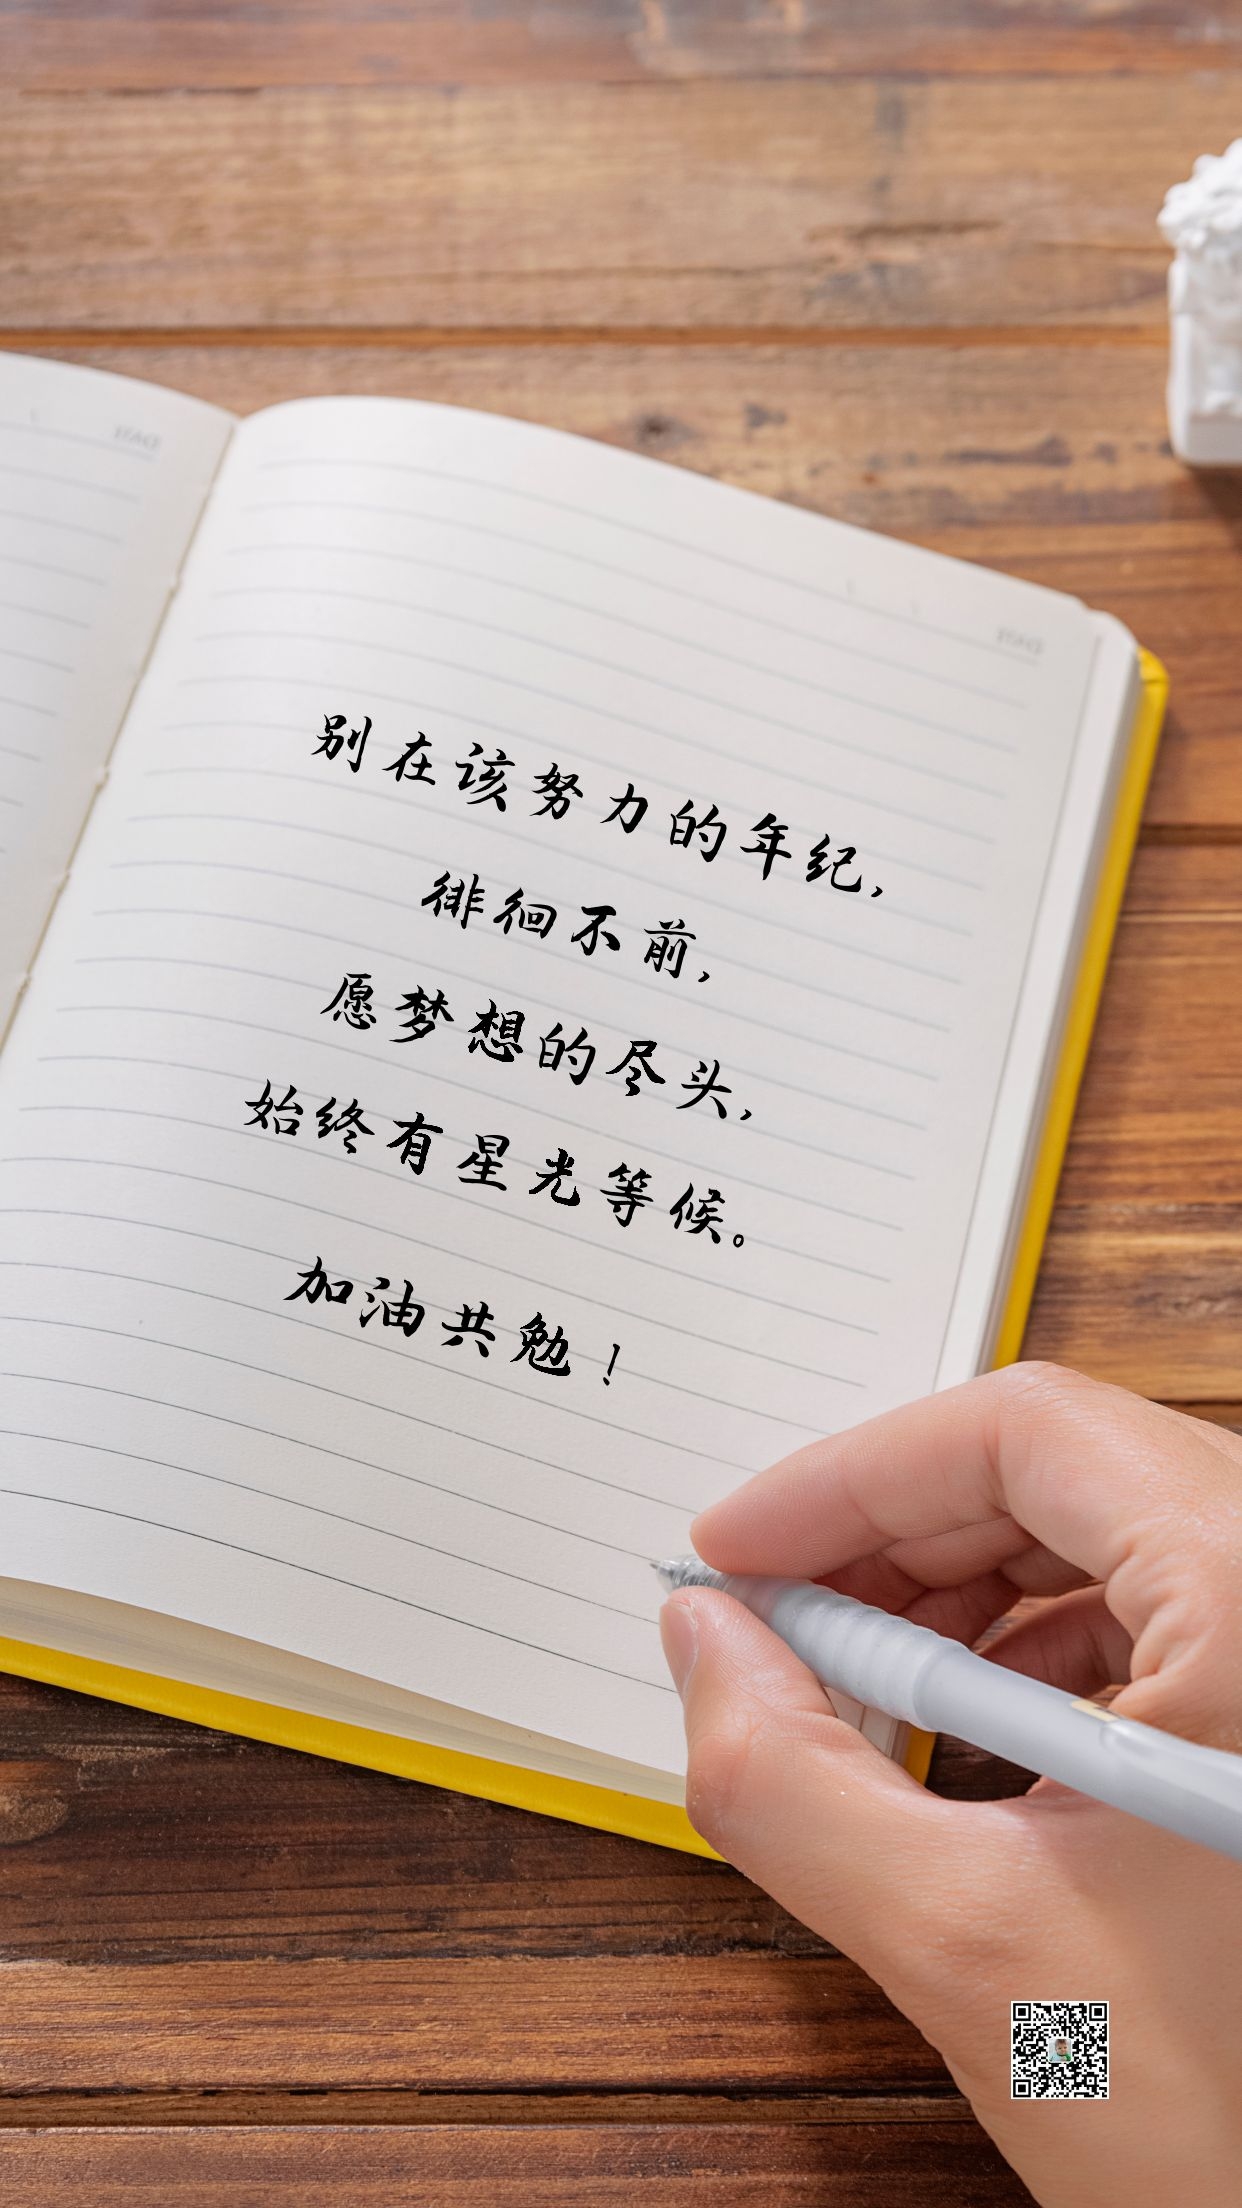 别在该努力的年纪，
徘徊不前，
愿梦想的尽头，
始终有星光等候。
加油共勉！